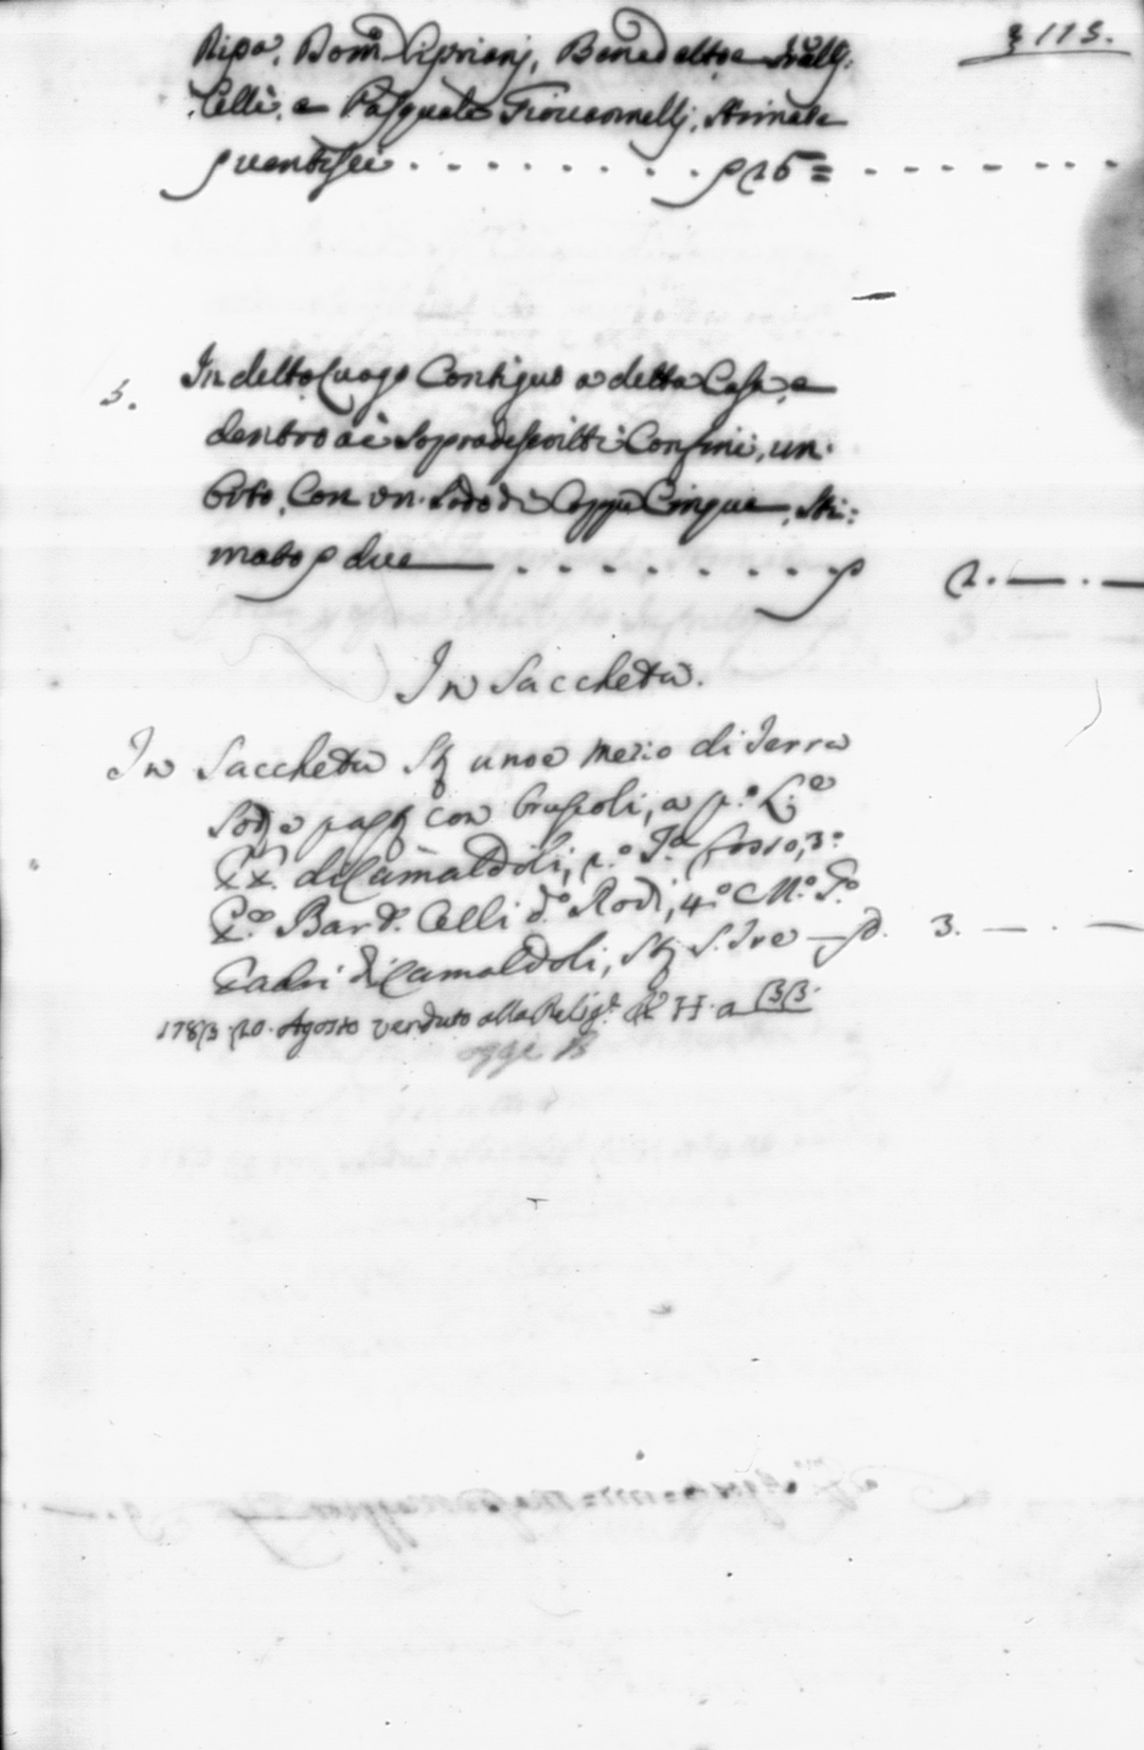 113.
Ripa, Dom.co Cipriani, Benedetto e Fratelli
Celli, e Pasquale Giovannelli, stimata
p ventisei . . . . . . . . p 26 =
5. In detto Luogo Contiguo a detta Casa, e
dentro a i Sopradescritti Confini, un
Orto, Con un Sodo di Coppe Cinque, Sti:
mato p due . . . . . . . . p 2. — . —
In Saccheta.
In Saccheta St uno e mezzo di Terra
Sod e past con bruscoli, a p.o L.e
PP. di Camaldoli, 2.o fosso, 3.o
Bar.o Celli d.o Rodi, 4.o M.o
Padri di Camaldoli, St S. Tre — p. 3. — . —
1783 20. Agosto venduto alla Relig. H. a BB.
oggi B